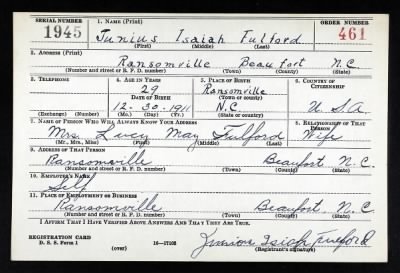 SERIAL NUMBER 1. NAME (Print) ORDER NUMBER
1945 Junius Isaiah Fulford 461
(First) (Middle) (Last)
2. ADDRESS (Print)
Ransomville Beaufort N.C.
(Number and street or R. F. D. number) (Town) (County) (State)
3. TELEPHONE 4. AGE IN YEARS 5. PLACE OF BIRTH 6. COUNTRY OF CITIZENSHIP
29 Ransomville
DATE OF BIRTH (Town or county)
12-30-1911 N.C U.S.A.
(Exchange) (Number) (Mo.) (Day) (Yr.) (State or country)
7. NAME OF PERSON WHO WILL ALWAYS KNOW YOUR ADDRESS 8. RELATIONSHIP OF THAT PERSON
Mrs. Lucy May Fulford Wife
(Mr., Mrs., Miss) (First) (Middle) (Last)
9. ADDRESS OF THAT PERSON
Ransomville Beaufort N.C
(Number and street or R. F. D. number) (Town) (County) (State)
10. EMPLOYER'S NAME
Self
11. PLACE OF EMPLOYMENT OR BUSINESS
Ransomville Beaufort, N.C.
(Number and street or R. F. D. number) (Town) (County) (State)
I AFFIRM THAT I HAVE VERIFIED ABOVE ANSWERS AND THAT THEY ARE TRUE.
REGISTRATION CARD
D. S. S. Form 1 16-17105 Junious Isiah Fulford
(over) (Registrant's signature)